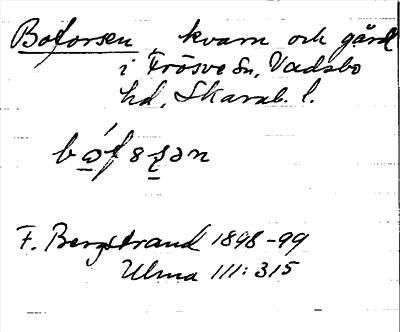 Boforsen, kvarn och gård
i Frösve sn, Vadsbo
hd, Skarab. l.
F. Bergstrand 1898-99
Ulma 111:315